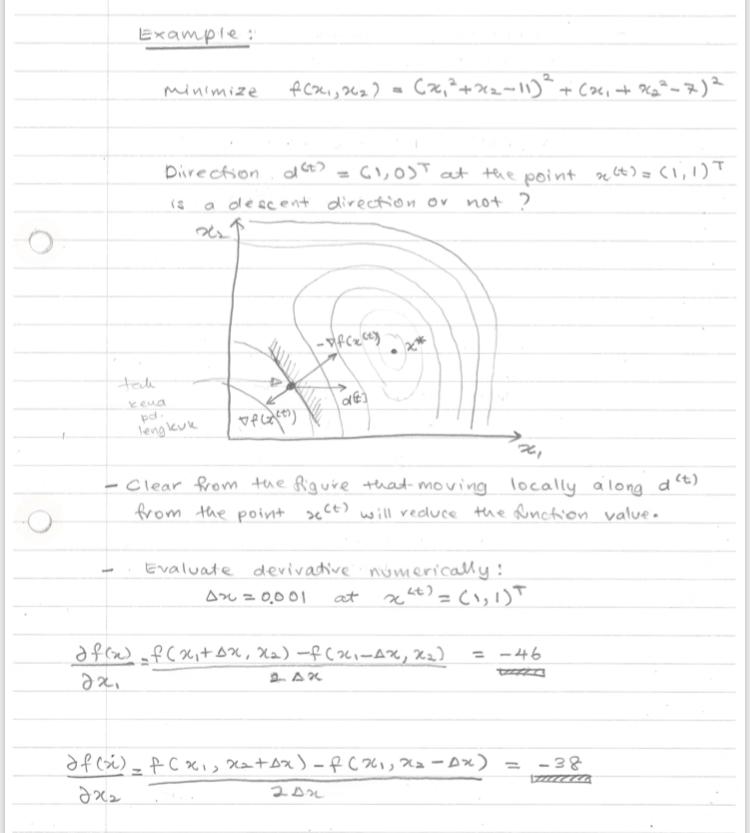 Example :
Minimize f(x₁, x₂) = (x₁² + x₂ - 11)² + (x₁ + x₂² - 7)²
Direction d⁽ᵗ⁾ = (1, 0)ᵀ at the point x⁽ᵗ⁾ = (1, 1)ᵀ
is a descent direction or not ?
x₂
-∇f(x⁽ᵗ⁾)
x*
d(t)
∇f(x⁽ᵗ⁾)
kena
pd.
lengkuk
x₁
- Clear from the figure that moving locally along d⁽ᵗ⁾
from the point x⁽ᵗ⁾ will reduce the function value.
- Evaluate derivative numerically :
Δx = 0.001 at x⁽ᵗ⁾ = (1, 1)ᵀ
∂f(x) = f(x₁ + Δx, x₂) - f(x₁ - Δx, x₂) = -46
∂x₁ 2 Δx
∂f(x) = f(x₁, x₂ + Δx) - f(x₁, x₂ - Δx) = -38
∂x₂ 2 Δx